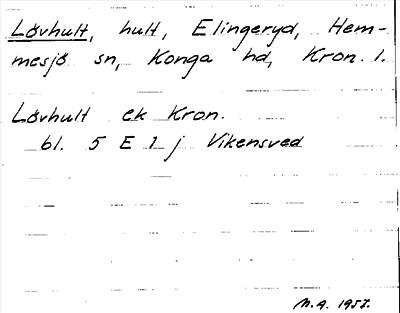 Lövhult, hult, Elingeryd, Hem-
mesjö sn, Konga hd, Kron. l.
Lövhult ek Kron.
bl. 5 E 1 j Vikensved
M.A. 1957.